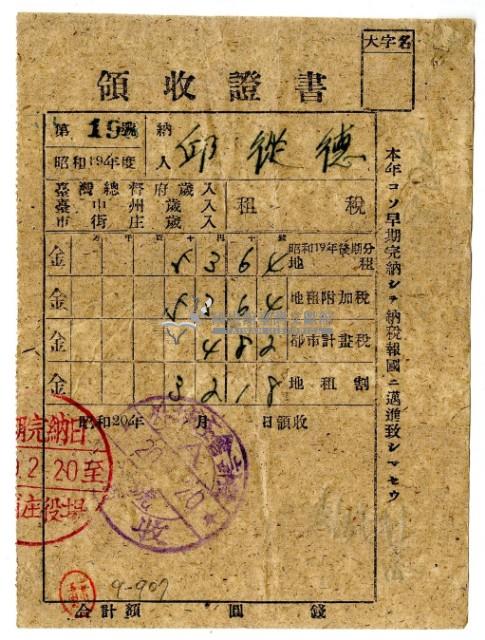 大字名
領收證書
第 19 號
昭和19年度
納人 邱 從 德
臺灣總督府歲入
臺中州歲入
市街庄歲入
租稅
金 5 3 6 4 昭和19年後期分 地租
金 5 3 6 4 地租附加稅
金 1 4 8 2 都市計畫稅
金 3 2 1 8 地租割
昭和20年 月 日領收
合計額 圓 錢
本年コソ早期完納シテ納稅報國ニ邁進致シマセウ
期完納日
2.20至
庄役場
20
20
收
9-907